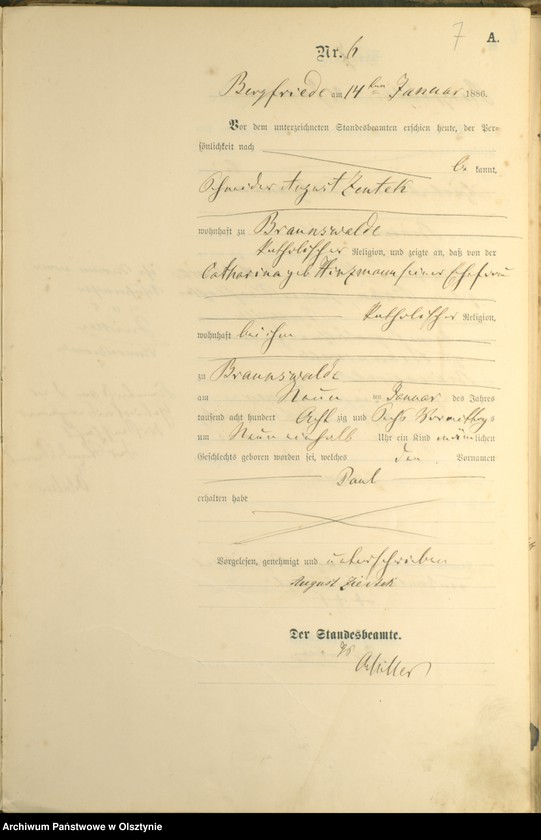 7 A.
Nr. 6
Bergfriede am 14ten Januar 1886.
Vor dem unterzeichneten Standesbeamten erschien heute, der Per-
sönlichkeit nach
be kannt,
Schneider August Zentek
wohnhaft zu Braunswalde
katholischer Religion, und zeigte an, daß von der
Catharina geb Hinzmann seiner Ehefrau
katholischer Religion,
wohnhaft bei ihm
zu Braunswalde
am Neun ten Januar des Jahres
tausend acht hundert Acht zig und Sechs Vormittags
um Neun einhalb Uhr ein Kind männlichen
Geschlechts geboren worden sei, welches den Vornamen
Paul
erhalten habe
Vorgelesen, genehmigt und unterschrieben
August Zientek
Der Standesbeamte.
Müller
Archiwum Państwowe w Olsztynie